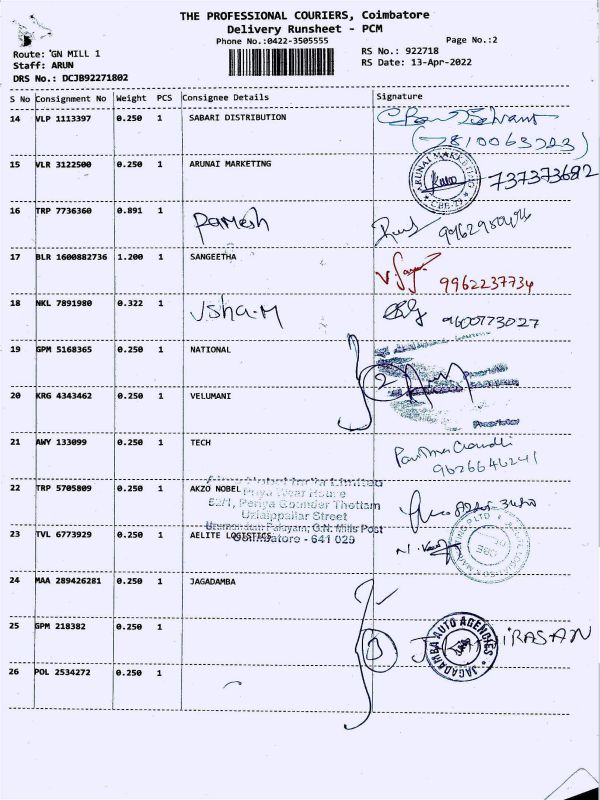 THE PROFESSIONAL COURIERS, Coimbatore
Delivery Runsheet - PCM
Phone No.:0422-3505555
Page No.:2
Route: GN MILL 1
RS No.: 922718
Staff: ARUN
RS Date: 13-Apr-2022
DRS No.: DCJB92271802
S No Consignment No Weight PCS Consignee Details Signature
14 VLP 1113397 0.250 1 SABARI DISTRIBUTION
15 VLR 3122500 0.250 1 ARUNAI MARKETING
ARUNAI MARKETING
CBE-29
737373682
16 TRP 7736360 0.891 1 Ramesh
17 BLR 1600882736 1.200 1 SANGEETHA 9962237734
18 NKL 7891980 0.322 1 Usha.M 9600773027
19 GPM 5168365 0.250 1 NATIONAL
20 KRG 4343462 0.250 1 VELUMANI
2
Proprietor
21 AWY 133099 0.250 1 TECH
9626646241
22 TRP 5705809 0.250 1 AKZO NOBEL
Akzo Nobel India Limited
Priya Wear House
52/1, Periya Gounder Thottam
Uzlaippallar Street
G.N. Mills Post
Coimbatore - 641 029
23 TVL 6773929 0.250 1 AELITE LOGISTICS
24 MAA 289426281 0.250 1 JAGADAMBA
25 GPM 218382 0.250 1
3
JAGADAMBA AUTO AGENCIES
26 POL 2534272 0.250 1